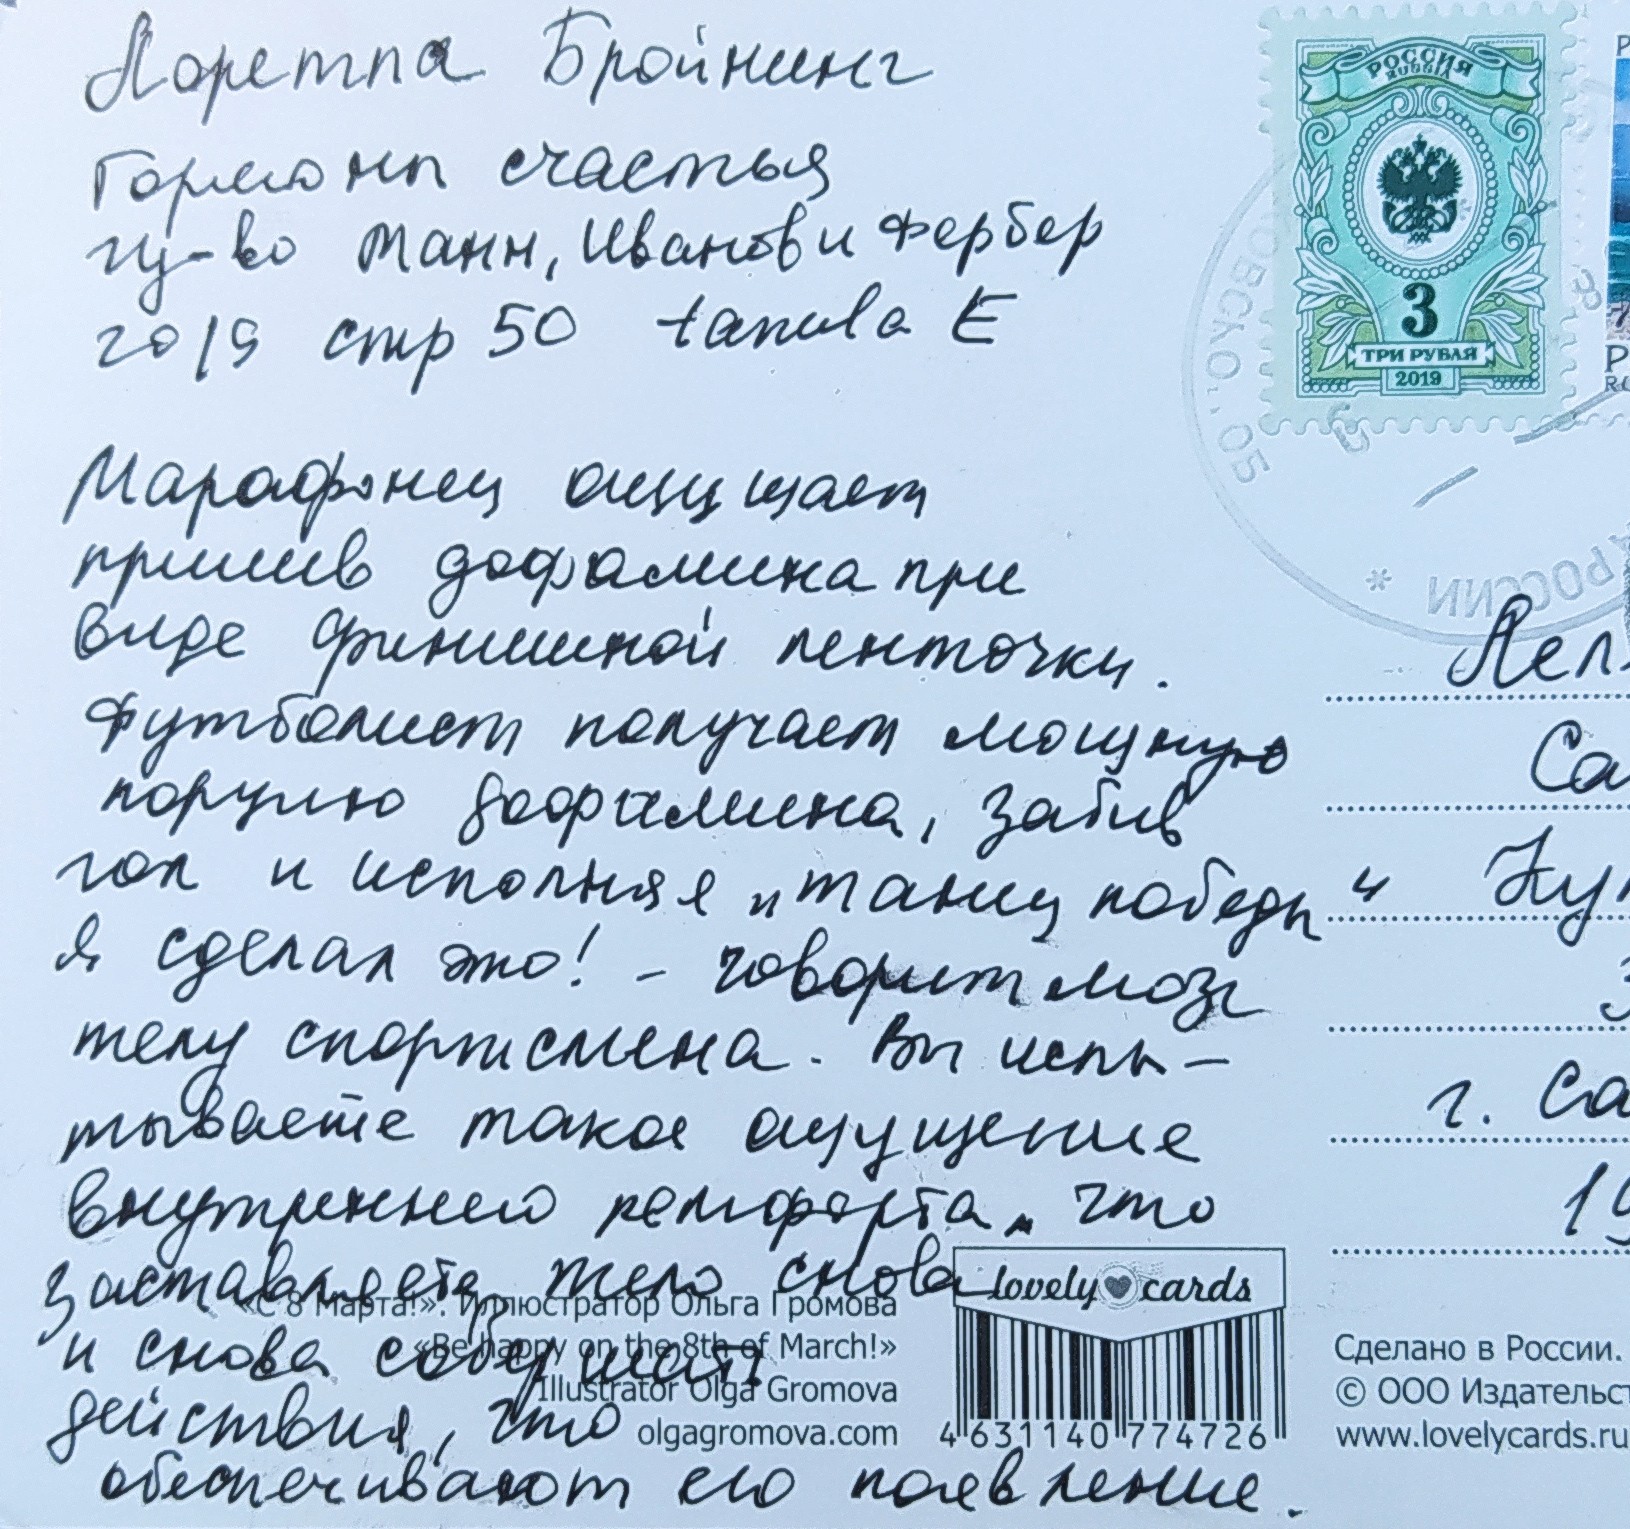 Лоретта Бройнинг
Гормоны счастья
из-во Манн, Иванов и Фербер
2019 стр 50 tanula E
Марафонец ощущает
прилив дофамина при
виде финишной ленточки.
Футболист получает мощную
порцию дофамина, забив
гол и исполняя „танец победы“
Я сделал это! – говорит мозг
телу спортсмена. Вы испы–
тываете такое ощущение
внутреннего комфорта, что
заставляете тело снова
и снова совершать
действия, что
обеспечивают его появление.
РОССИЯ
RUSSIA
3
ТРИ РУБЛЯ
2019
РОССИИ *
Са
г. Са
19
«С 8 Марта!». Иллюстратор Ольга Громова
«Be happy on the 8th of March!»
Illustrator Olga Gromova
olgagromova.com
lovely cards
4 631140 774726
Сделано в России.
© ООО Издательст
www.lovelycards.ru